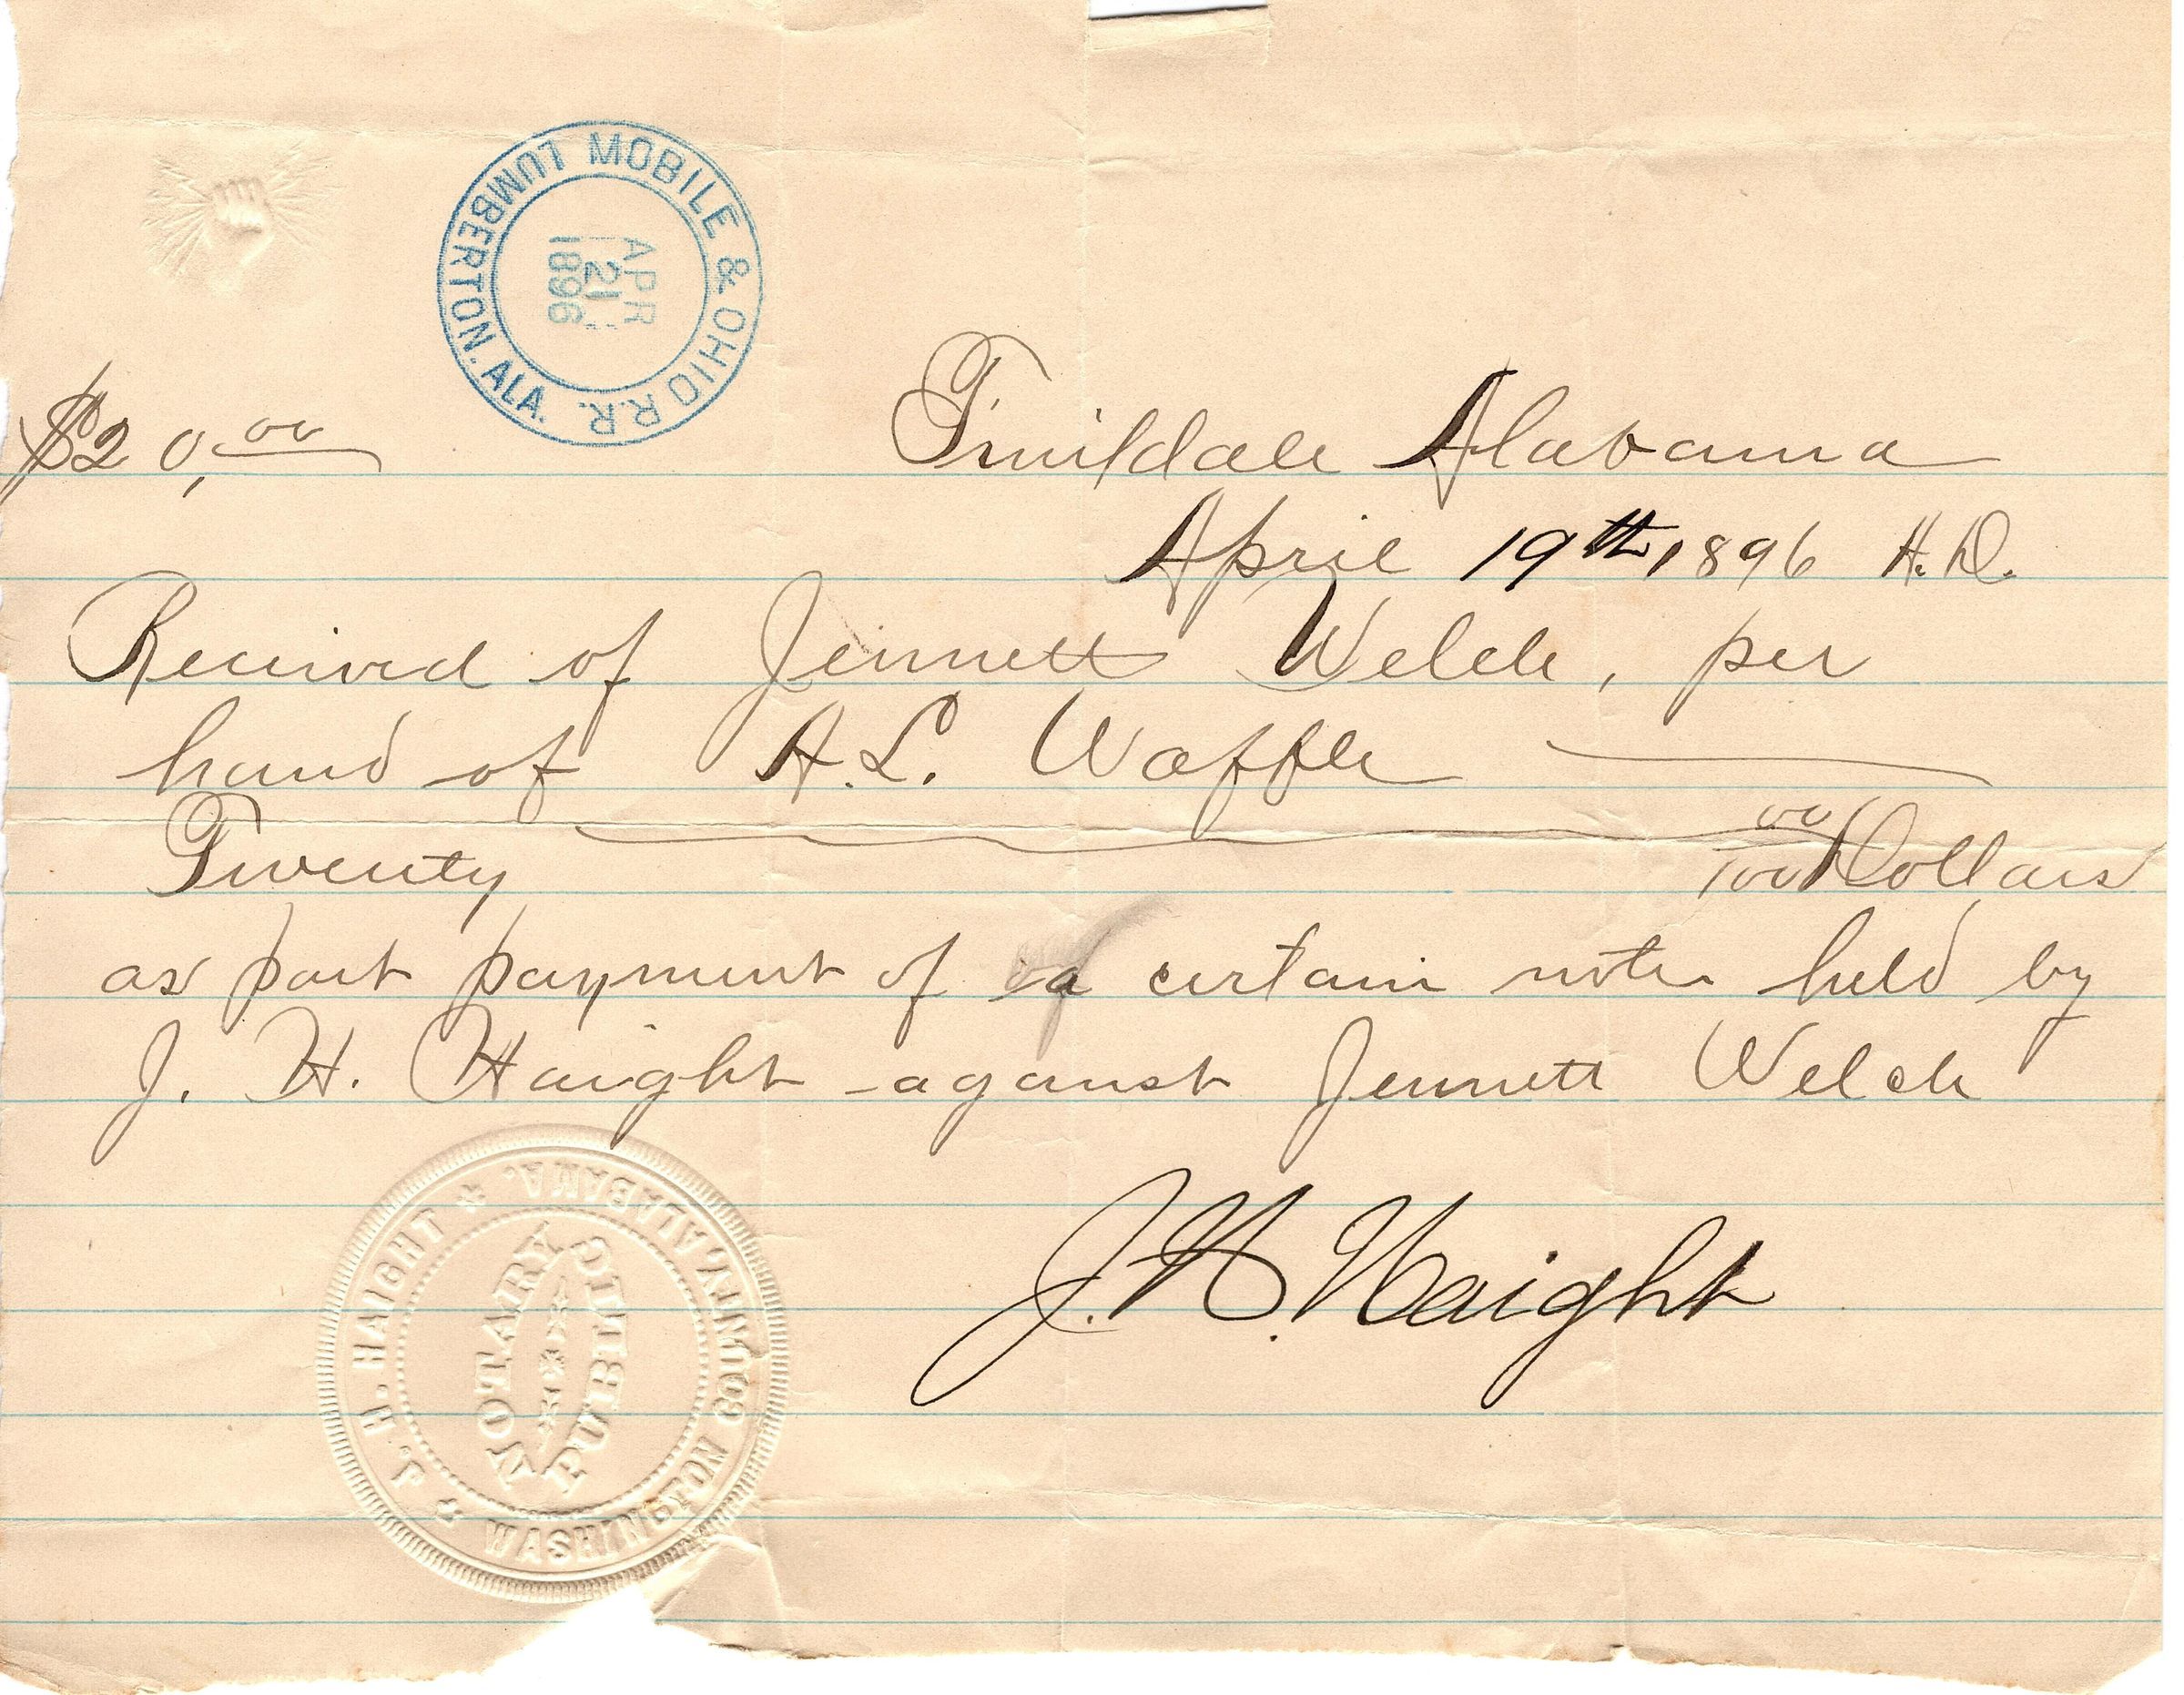 MOBILE & OHIO R.R.
LUMBERTON, ALA.
APR
21
1896
$20,00
Fruitdale Alabama
April 19th 1896 A.D.
Received of Jennett Welch, per
hand of A.L. Waffle
Twenty 00/100 Dollars
as part payment of a certain note held by
J. H. Haight against Jennett Welch
J. H. Haight
J. H. HAIGHT
NOTARY
PUBLIC
WASHINGTON COUNTY, ALABAMA.